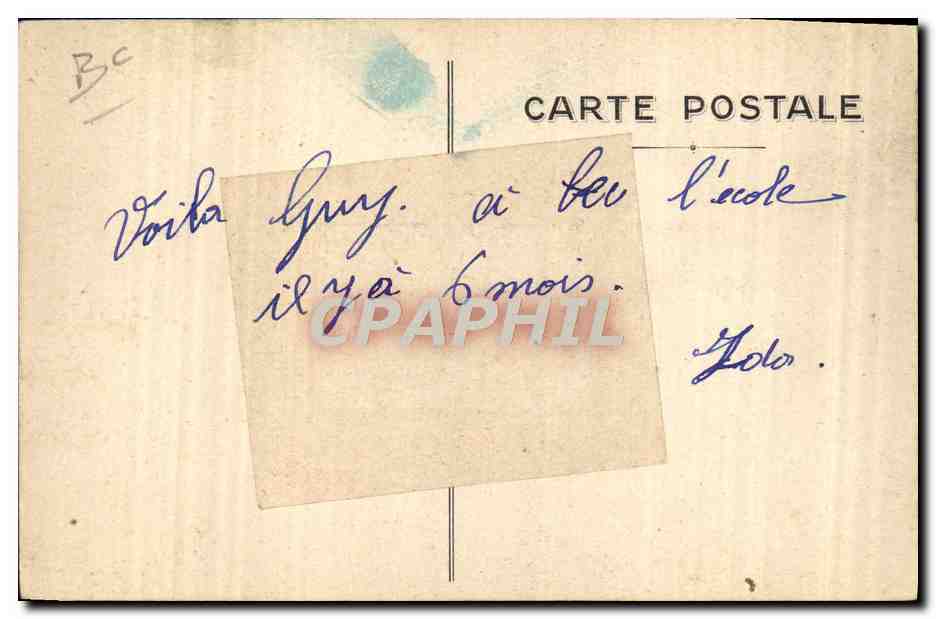 BC
CARTE POSTALE
Voila Guy. à l'école
il y à 6 mois.
CPAPHIL